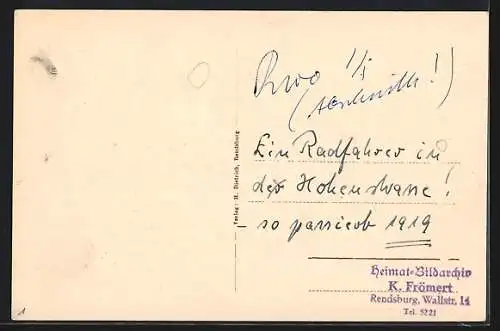 1/5
Ein Radfahrer in
der Hohenstrasse!
- so passiert 1919
Verlag: H. Dietrich, Rendsburg
Heimat-Bildarchiv
K. Frömert
Rendsburg, Wallstr. 14
Tel. 5221
1